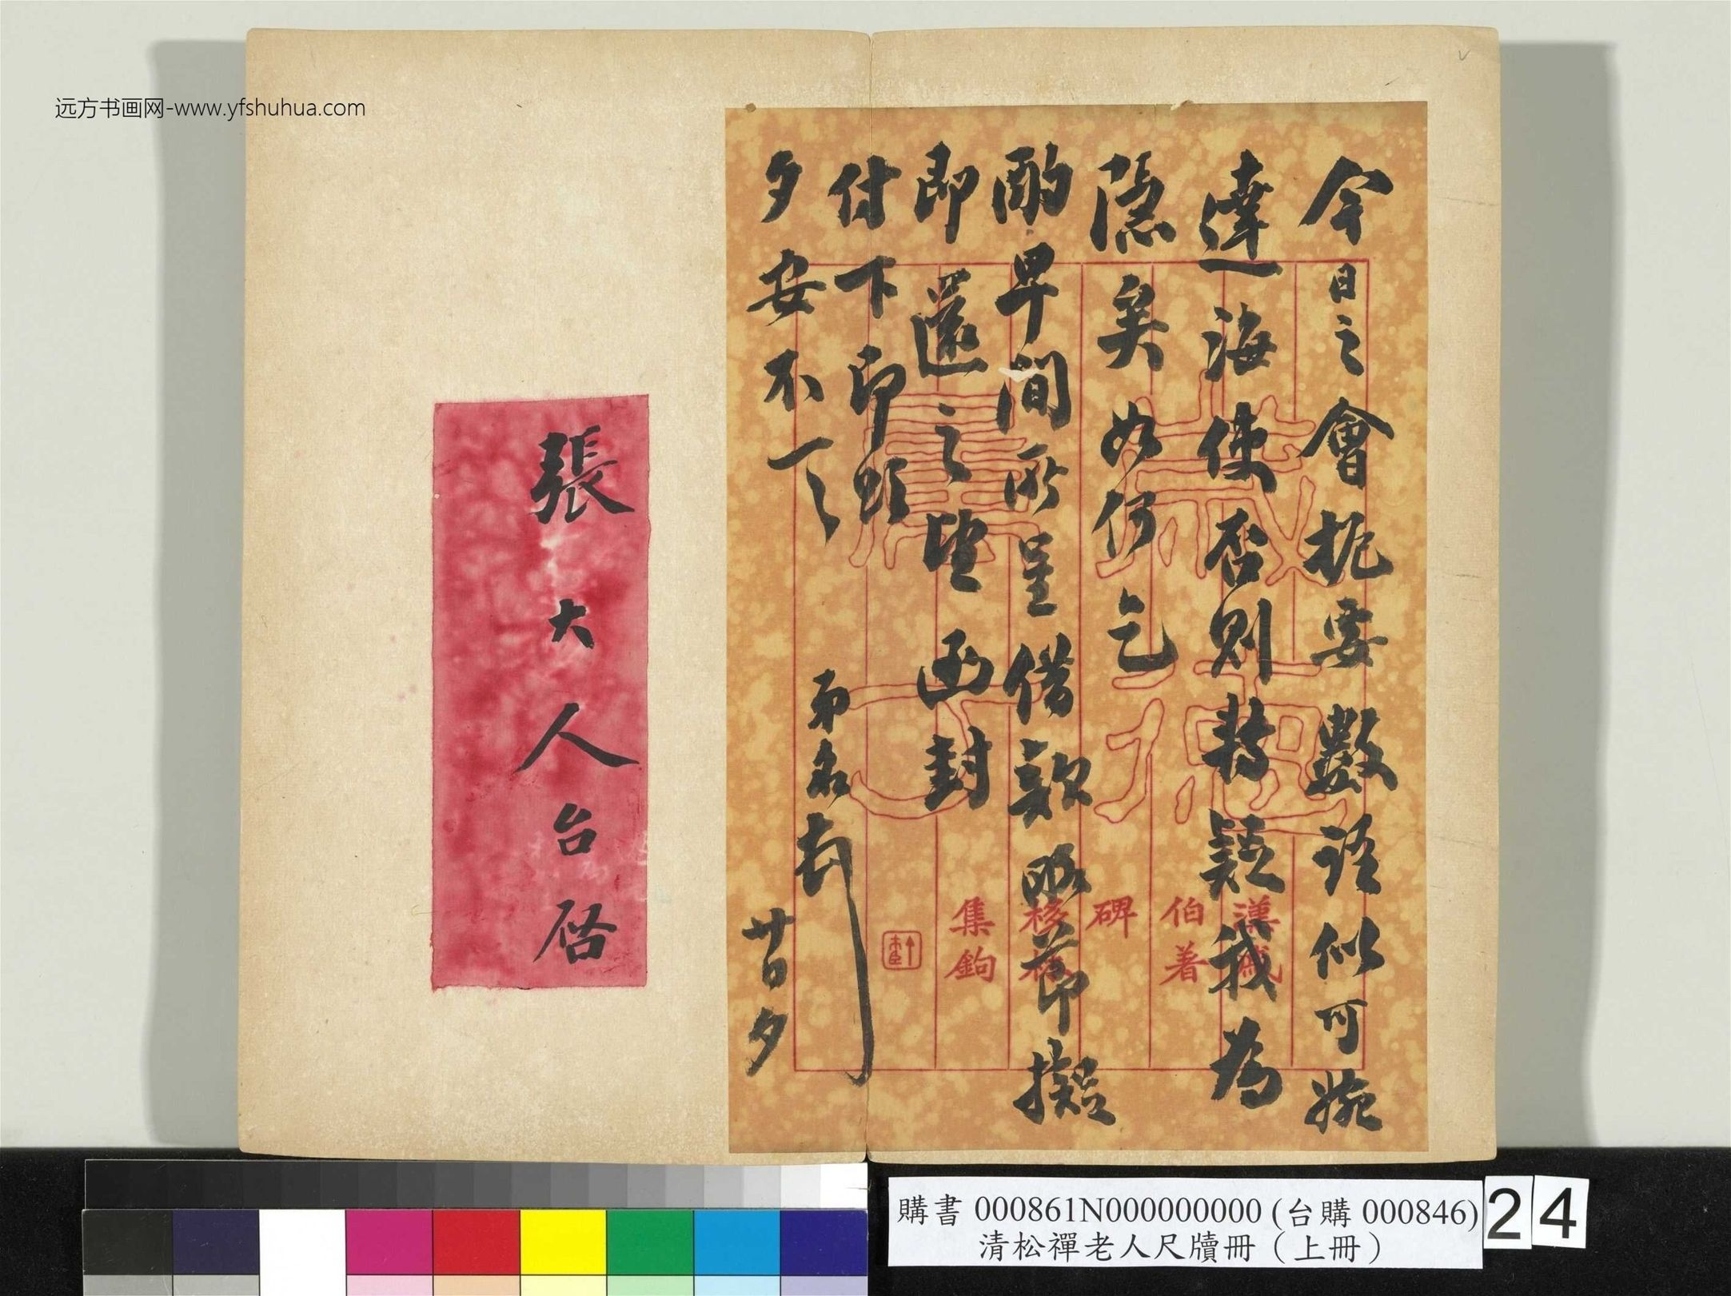 远方书画网-www.yfshuhua.com
今日之會扼要數語似可婉
達海使否則轉疑我為
隱矣如何乞
酌早間所呈借款略節擬
即還之望函封
付下即頌
夕安不一一
弟名頓首
廿日夕
漢
伯著
碑
集鉤
張大人台啓
購書 000861N000000000 (台購 000846)
清松禪老人尺牘冊（上冊）
24